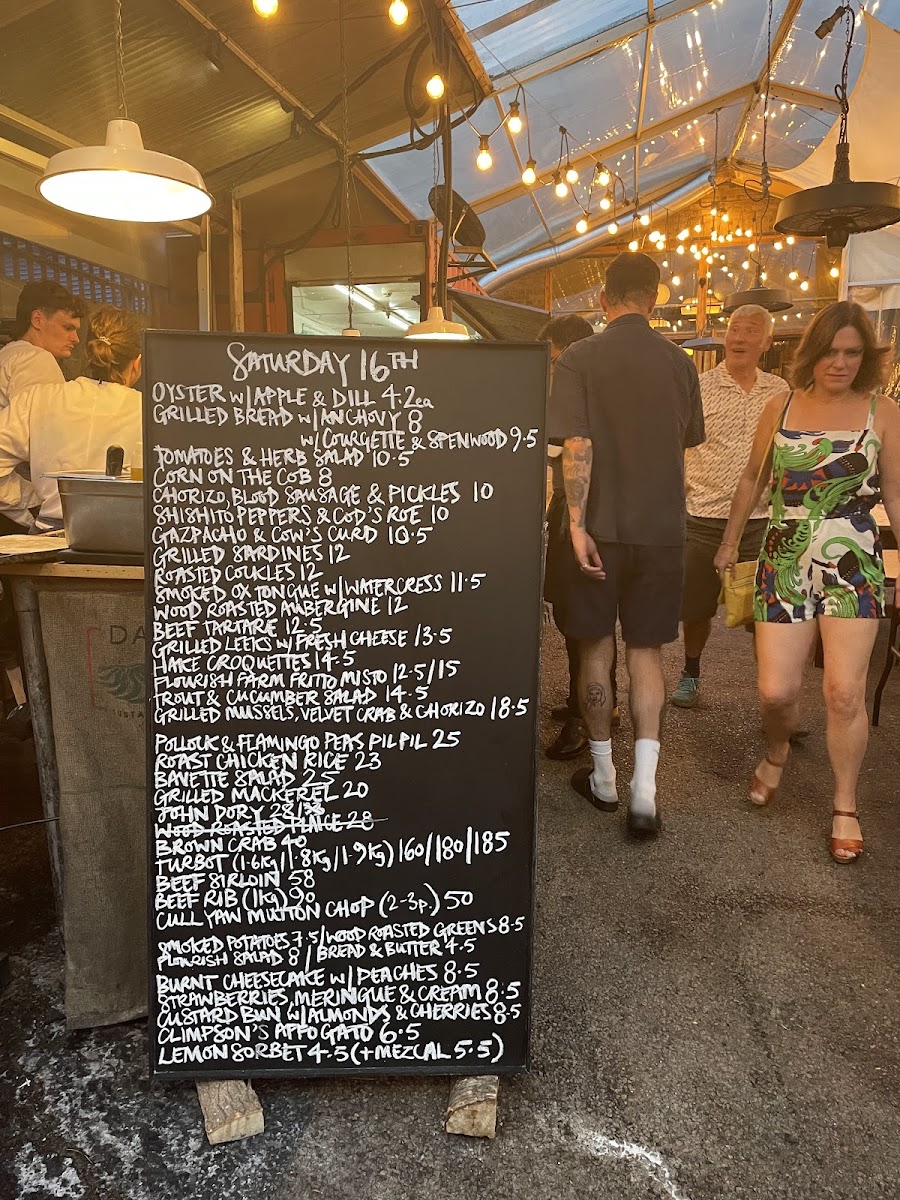 SATURDAY 16TH
OYSTER w/APPLE & DILL 4.2ea
GRILLED BREAD w/ANCHOVY 8
w/COURGETTE & SPENWOOD 9.5
TOMATOES & HERB SALAD 10.5
CORN ON THE COB 8
CHORIZO, BLOOD SAUSAGE & PICKLES 10
SHISHITO PEPPERS & COD'S ROE 10
GAZPACHO & COW'S CURD 10.5
GRILLED SARDINES 12
ROASTED COCKLES 12
SMOKED OX TONGUE w/WATERCRESS 11.5
WOOD ROASTED AUBERGINE 12
BEEF TARTARE 12.5
GRILLED LEEKS w/FRESH CHEESE 13.5
HAKE CROQUETTES 14.5
FLOURISH FARM FRITTO MISTO 12.5/15
TROUT & CUCUMBER SALAD 14.5
GRILLED MUSSELS, VELVET CRAB & CHORIZO 18.5
POLLOCK & FLAMINGO PEAS PIL PIL 25
ROAST CHICKEN RICE 23
BAVETTE SALAD 25
GRILLED MACKEREL 20
JOHN DORY 28/38
WOOD ROASTED PLAICE 28
BROWN CRAB 40
TURBOT (1.6kg/1.8kg/1.9kg) 160/180/185
BEEF SIRLOIN 58
BEEF RIB (1kg) 90
CULL YAW MUTTON CHOP (2-3p.) 50
SMOKED POTATOES 7.5/WOOD ROASTED GREENS 8.5
FLOURISH SALAD 8 / BREAD & BUTTER 4.5
BURNT CHEESECAKE w/PEACHES 8.5
STRAWBERRIES, MERINGUE & CREAM 8.5
CUSTARD BUN w/ALMONDS & CHERRIES 8.5
CLIMPSON'S AFFOGATO 6.5
LEMON SORBET 4.5 (+MEZCAL 5.5)